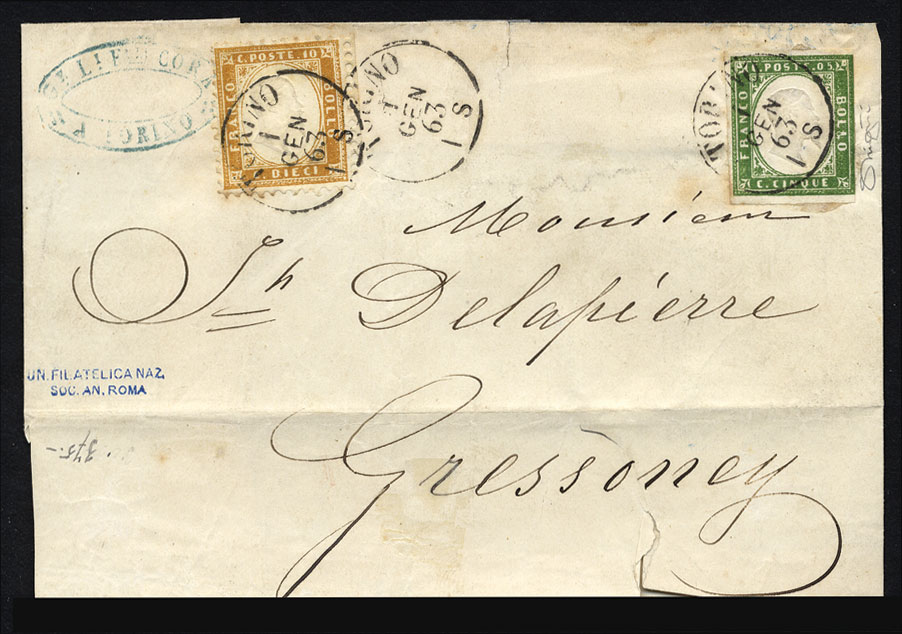 Lⁱ F CORA
TORINO
C. POSTE 10
FRANCO
BOLLO
C. DIECI
TORINO
1
GEN
63
1 S
TORINO
1
GEN
63
1 S
C. POSTE 05
FRANCO
BOLLO
C. CINQUE
TORINO
GEN
63
1 S
Monsieur
Jh Delapierre
UN. FILATELICA NAZ.
SOC. AN. ROMA
375.-
Gressoney